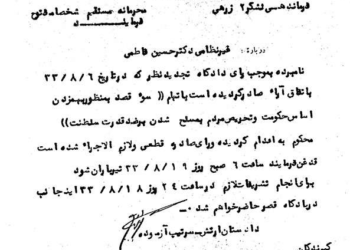 فرماندهی لشکر ۲ زرهی
محرمانه مستقیم شخصا مفتوح
فرمایند
درباره: غیرنظامی دکتر حسین فاطمی
نامبرده بموجب رای دادگاه تجدیدنظر که در تاریخ ۳۳/۸/۶
باتفاق آراء صادر گردیده است باتهام ((سوء قصد بمنظور بهمزدن
اساس حکومت و تحریص مردم به مسلح شدن برضد قدرت سلطنت))
محکوم به اعدام گردیده و رای صادر و قطعی ولازم الاجراء شده است
قدغن فرمایند ساعت ۶ صبح روز ۳۳/۸/۱۹ تیرباران شود
برای انجام تشریفات لازم در ساعت ۲۴ روز ۳۳/۸/۱۸ اینجانب
در پادگان قصر حاضر خواهم شد
دادستان ارتش سرتیپ آزموده
گیرندگان